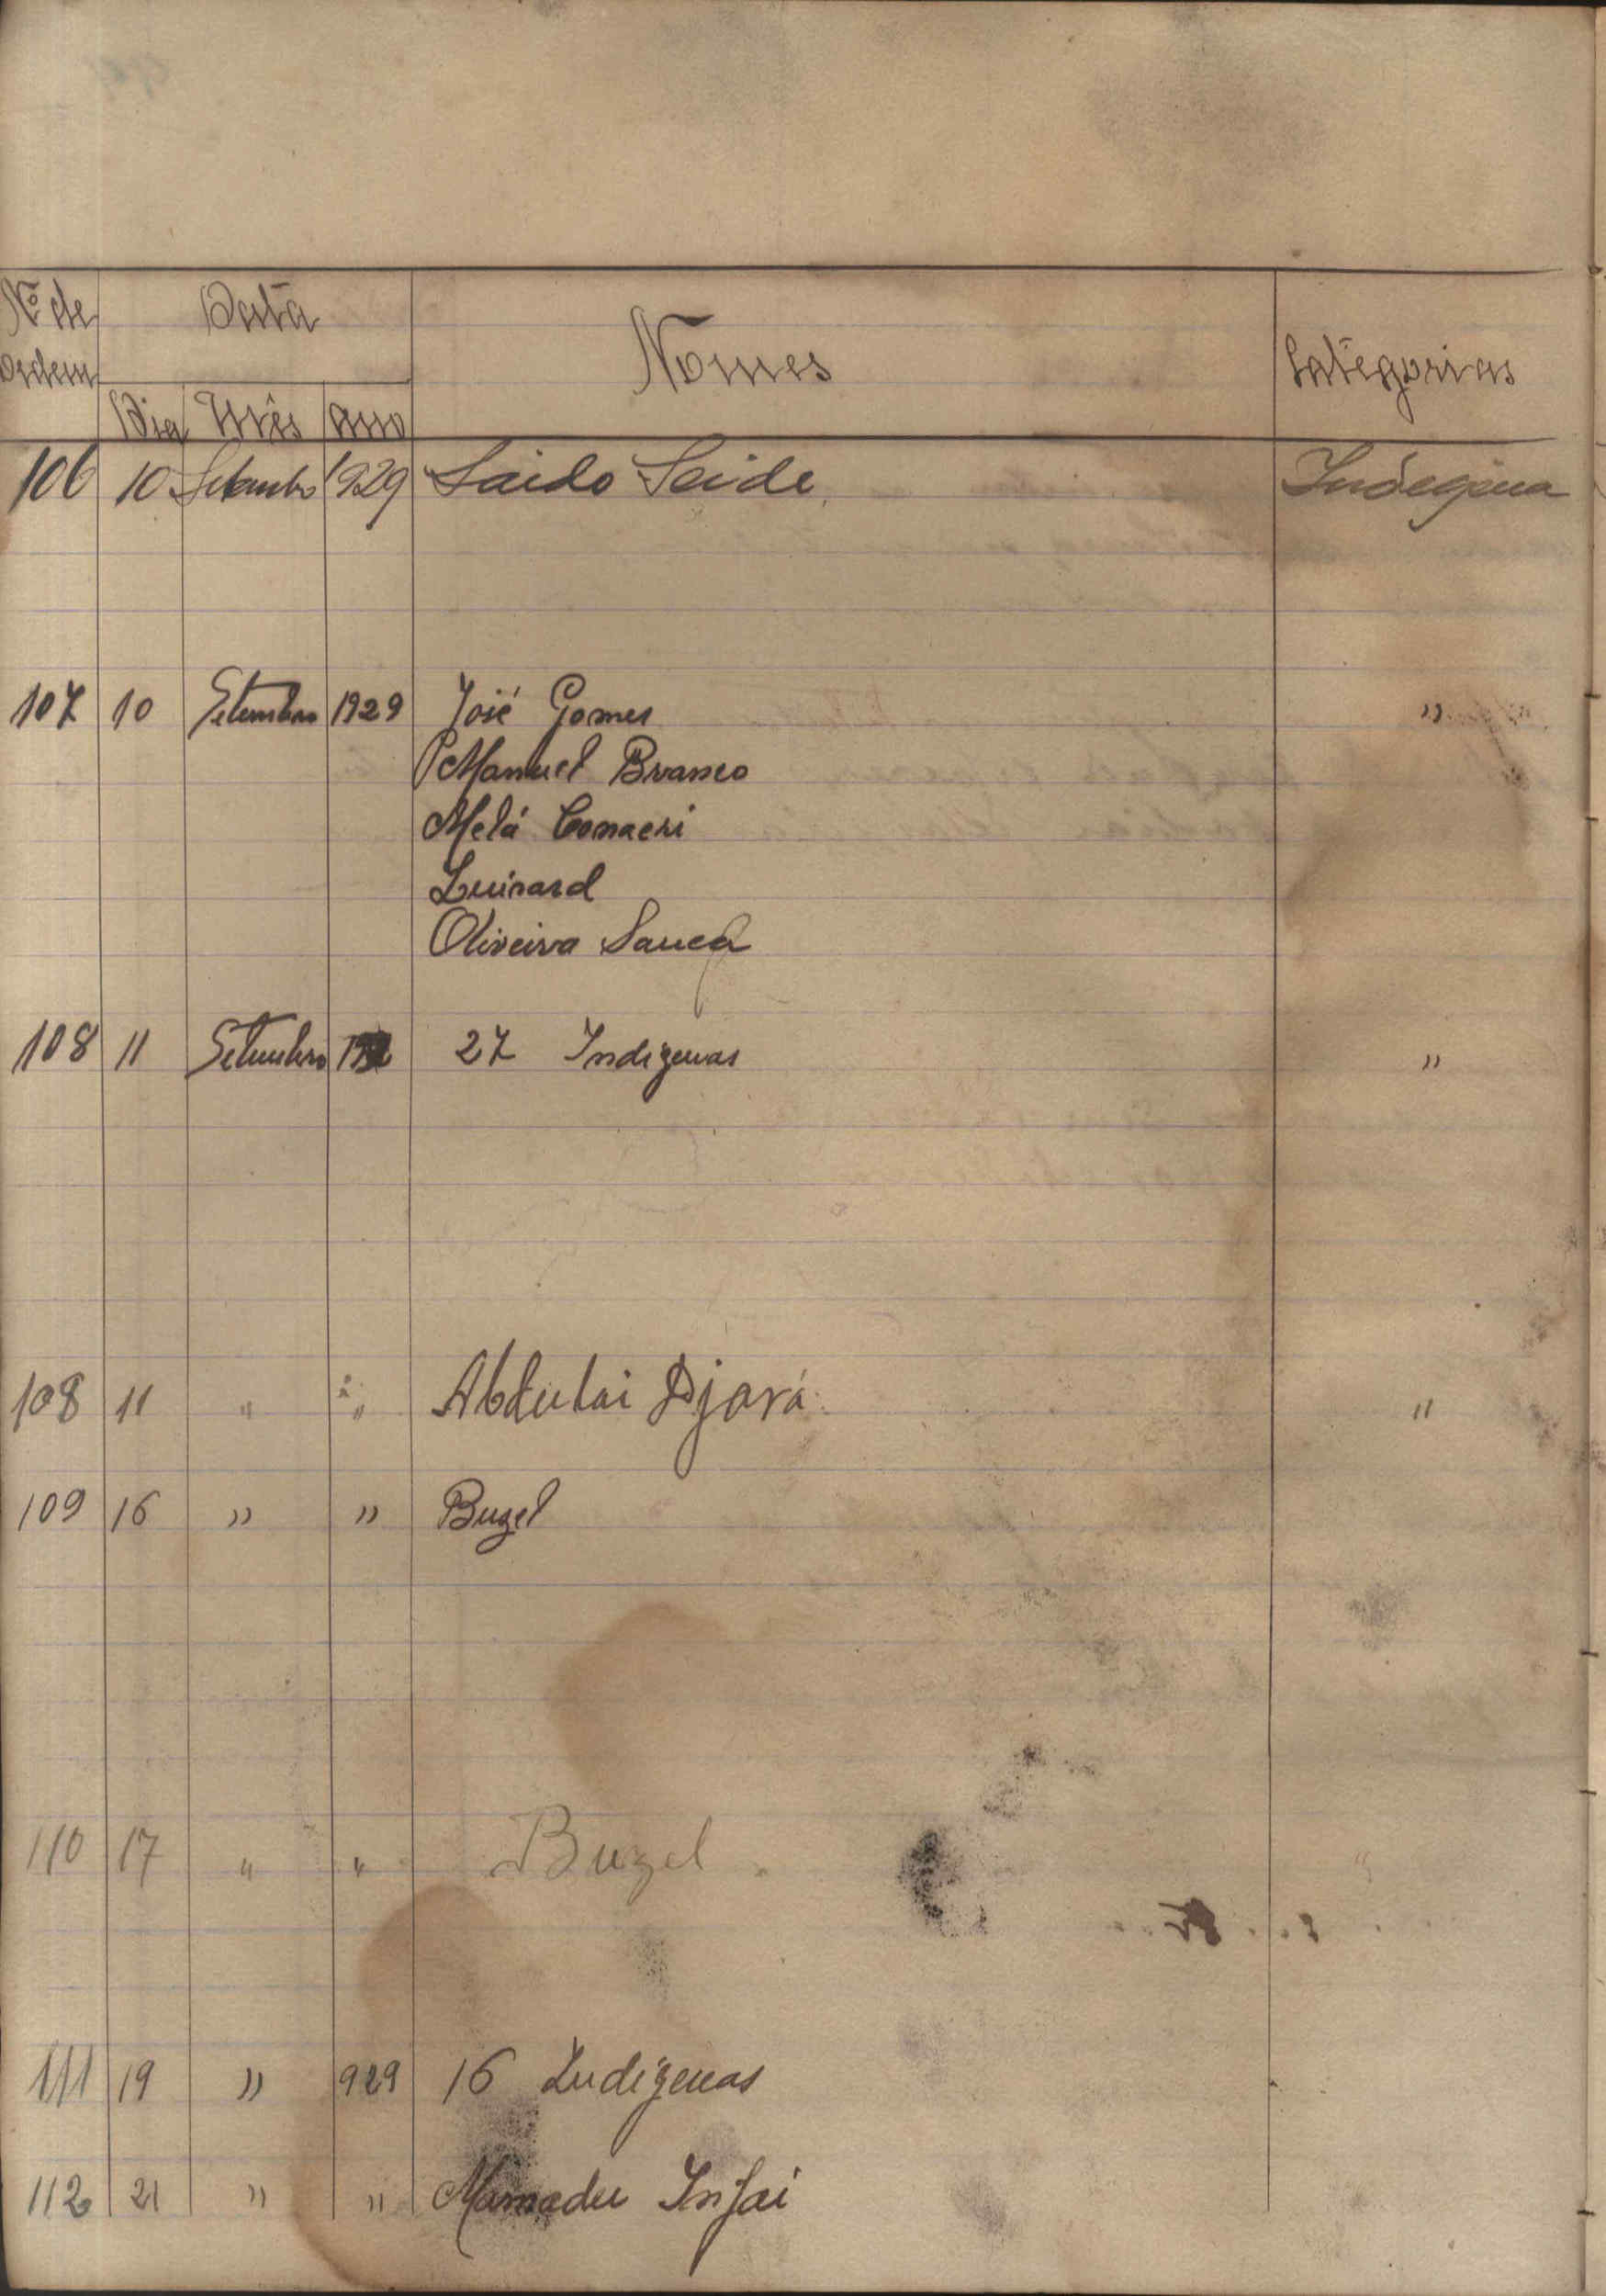 Nº de Data Nomes Categorias
Ordem
Dia Mês Ano
106 10 Setembro 1929 Saido Seide Indegena
107 10 Setembro 1929 José Gomes "
Manuel Branco
Melá Conacri
Luinard
Oliveira Sanca
108 11 Setembro 27 Indigenas "
108 11 " " Abdulai Djará "
109 16 " " Buzel
110 17 " " Buzel "
111 19 " 929 16 Indigenas
112 21 " " Mamadu Injai